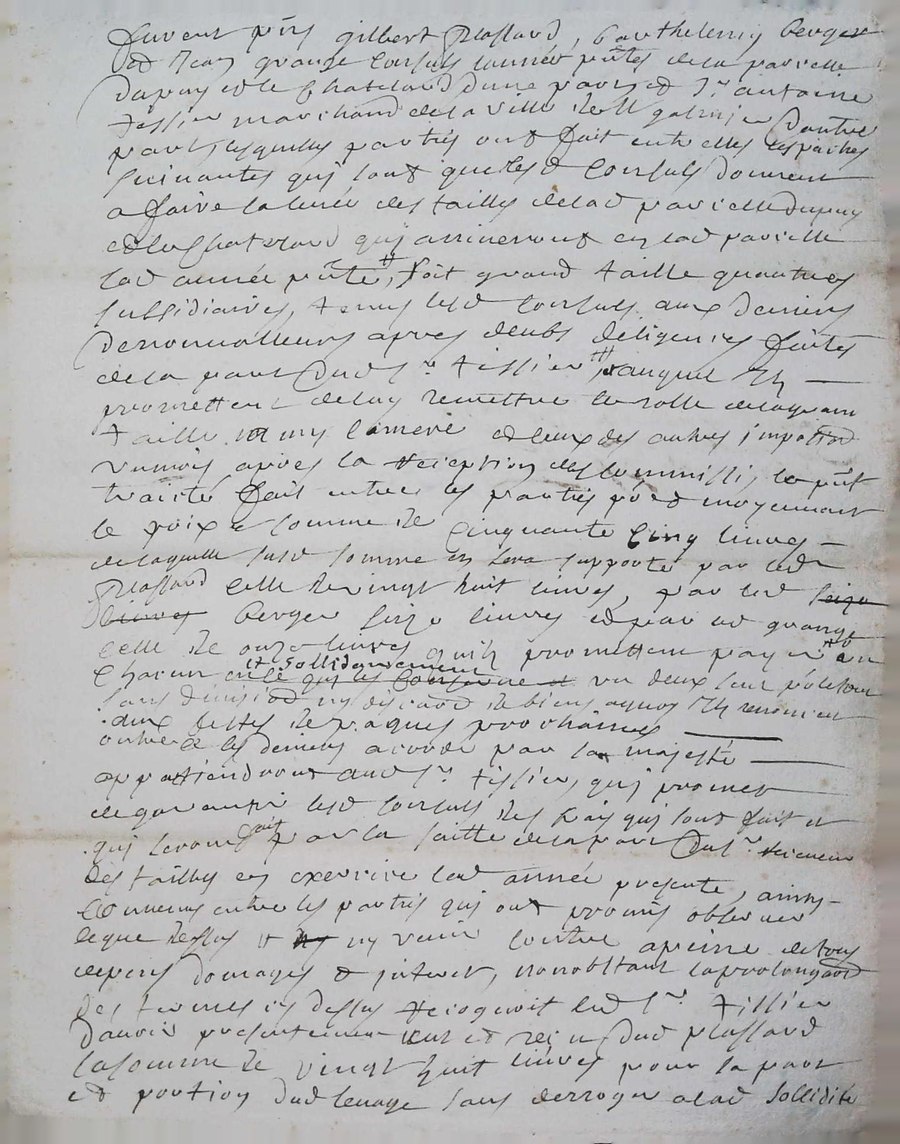 furent p̃ns gilbert plassard, barthelemy berger
et Jean grange Consuls lannée p̃nte de la paroisse
Dapuy et le Chatelard Dune part, et Sr antoine
tessier marchand de la ville de St galmier Dautre
part, lesquelles parties ont fait entre elles les paches
suivantes qui sont que lesd Consuls Doivent
a faire la levée des tailles de lad paroisse Dupuy
et le Chatelard qui arriveront en lad paroisse
lad année p̃nte, soit grand taille quartiers
subsidiaires, lesd Consuls aux deniers
apres deubs deligences faites
de la part Dud Sr tessier, auquel Ils
promettent de luy remettre le rolle de la grand
taille et ceux des autres impositions
apres la reception des Commissions, le p̃nt
traicté fait entre les parties moyennant
le prix et somme de Cinquante Cinq livres
de laquelle susd somme en sera supporté par led
plassard celle de vingt huit livres, par led
livres berger seize livres et par led grange
celle de onze livres quils promettent payer un
chacun et sollidairement un deux seul pour le tout
sans division ny discution de biens a quoy Ils renoncent
aux festes de paques prochaines
outre ce les deniers acordé par sa majesté
appartiendront aud Sr tessier, qui promet
de garantir lesd Consuls des frais qui sont fait et
qui seront fait par la faute de la part Du Sr receveur
Des tailles en exercice lad année presente, ainsy
convenu entre les parties qui ont promis observer
ce que dessus et ny venir contre a peine de tous
depens Domages et interet, nonobstant
Des termes cy dessus led Sr tessier
Davoir presentement eut et reçu Dud plassard
la somme de vingt huit livres pour sa part
et portion Dud levage sans derroger a lad sollidité